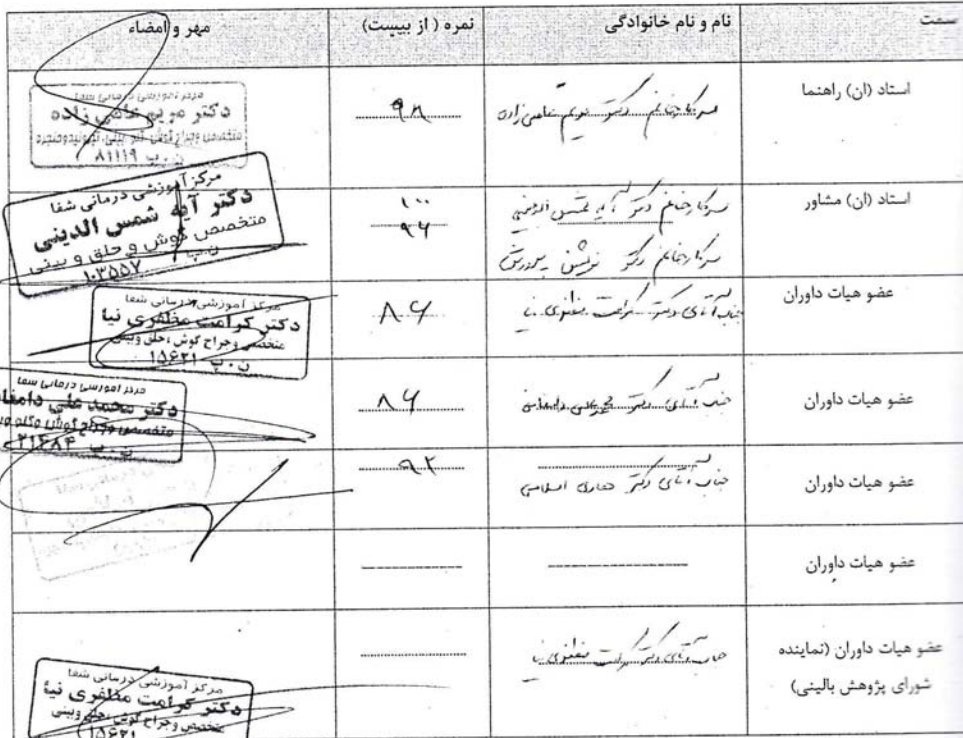 سمت	نام و نام خانوادگی	نمره ( از بیست)	مهر و امضاء
استاد (ان) راهنما	سرکار خانم دکتر مریم قاضی زاده	۹۸	مرکز آموزشی درمانی شفا
دکتر مریم قاضی زاده
متخصص وجراح گوش، گلو، بینی
ن.پ ۸۱۱۱۹
استاد (ان) مشاور	سرکار خانم دکتر آیه شمس الدینی	۱۰۰	مرکز آموزشی درمانی شفا
دکتر آیه شمس الدینی
متخصص گوش و حلق و بینی
ن.پ ۱۰۳۵۵۷
سرکار خانم دکتر نوشین	۹۴
عضو هیات داوران	جناب آقای دکتر کرامت مظفری نیا	۸۶	مرکز آموزشی درمانی شفا
دکتر کرامت مظفری نیا
متخصص وجراح گوش ،حلق وبینی
ن.پ ۱۵۶۲۱
عضو هیات داوران	جناب آقای دکتر محمد علی	۸۶	مرکز آموزشی درمانی شفا
دکتر محمد علی
متخصص وجراح گوش وگلو
ن.پ ۲۱۲۸۴
عضو هیات داوران	جناب آقای دکتر اسلامی	۹۲
عضو هیات داوران
عضو هیات داوران (نماینده	جناب آقای دکتر کرامت مظفری نیا	مرکز آموزشی درمانی شفا
شورای پژوهش بالینی)	دکتر کرامت مظفری نیا
متخصص وجراح گوش ،حلق وبینی
۱۵۶۲۱